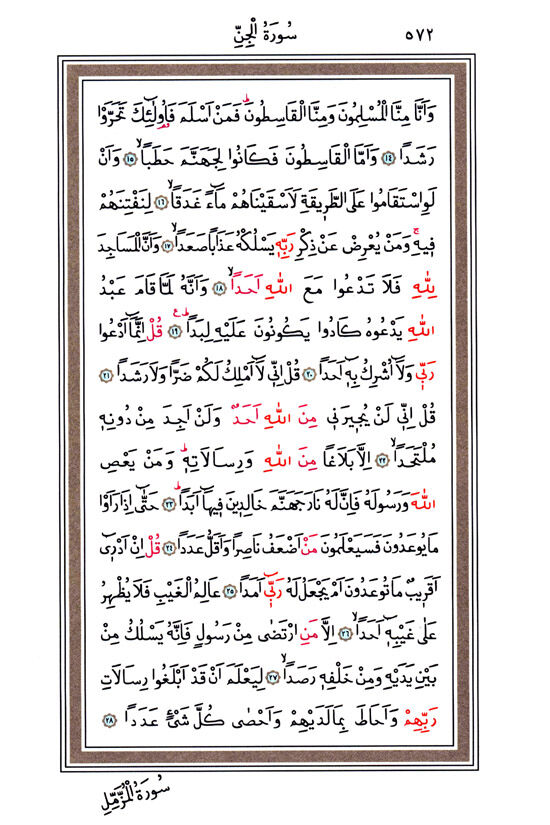 سُورَةُ الْجِنِّ ٥٧٢
وَاَنَّا مِنَّا الْمُسْلِمُونَ وَمِنَّا الْقَاسِطُونَۜ فَمَنْ اَسْلَمَ فَاُو۬لٰٓئِكَ تَحَرَّوْا
رَشَداً ﴿١٤﴾ وَاَمَّا الْقَاسِطُونَ فَكَانُوا لِجَهَنَّمَ حَطَباًۙ ﴿١٥﴾ وَاَنْ
لَوِاسْتَقَامُوا عَلَى الطَّر۪يقَةِ لَاَسْقَيْنَاهُمْ مَٓاءً غَدَقاًۙ ﴿١٦﴾ لِنَفْتِنَهُمْ
ف۪يهِۜ وَمَنْ يُعْرِضْ عَنْ ذِكْرِ رَبِّه۪ يَسْلُكْهُ عَذَاباً صَعَداًۙ ﴿١٧﴾ وَاَنَّ الْمَسَاجِدَ
لِلّٰهِ فَلَا تَدْعُوا مَعَ اللّٰهِ اَحَداًۙ ﴿١٨﴾ وَاَنَّهُ لَمَّا قَامَ عَبْدُ
اللّٰهِ يَدْعُوهُ كَادُوا يَكُونُونَ عَلَيْهِ لِبَداًۜ ﴿١٩﴾ قُلْ اِنَّمَٓا اَدْعُوا
رَبّ۪ي وَلَٓا اُشْرِكُ بِه۪ٓ اَحَداً ﴿٢٠﴾ قُلْ اِنّ۪ي لَٓا اَمْلِكُ لَكُمْ ضَراًّ وَلَا رَشَداً ﴿٢١﴾
قُلْ اِنّ۪ي لَنْ يُج۪يرَن۪ي مِنَ اللّٰهِ اَحَدٌ وَلَنْ اَجِدَ مِنْ دُونِه۪
مُلْتَحَداًۙ ﴿٢٢﴾ اِلَّا بَلَاغاً مِنَ اللّٰهِ وَرِسَالَاتِه۪ۜ وَمَنْ يَعْصِ
اللّٰهَ وَرَسُولَهُ فَاِنَّ لَهُ نَارَ جَهَنَّمَ خَالِد۪ينَ ف۪يهَٓا اَبَداًۜ ﴿٢٣﴾ حَتّٰٓى اِذَا رَاَوْا
مَا يُوعَدُونَ فَسَيَعْلَمُونَ مَنْ اَضْعَفُ نَاصِراً وَاَقَلُّ عَدَداً ﴿٢٤﴾ قُلْ اِنْ اَدْر۪ٓي
اَقَر۪يبٌ مَا تُوعَدُونَ اَمْ يَجْعَلُ لَهُ رَبّ۪ٓي اَمَداً ﴿٢٥﴾ عَالِمُ الْغَيْبِ فَلَا يُظْهِرُ
عَلٰى غَيْبِه۪ٓ اَحَداًۙ ﴿٢٦﴾ اِلَّا مَنِ ارْتَضٰى مِنْ رَسُولٍ فَاِنَّهُ يَسْلُكُ مِنْ
بَيْنِ يَدَيْهِ وَمِنْ خَلْفِه۪ رَصَداًۙ ﴿٢٧﴾ لِيَعْلَمَ اَنْ قَدْ اَبْلَغُوا رِسَالَاتِ
رَبِّهِمْ وَاَحَاطَ بِمَا لَدَيْهِمْ وَاَحْصٰى كُلَّ شَيْءٍ عَدَداً ﴿٢٨﴾
سُورَةُ الْمُزَّمِّلِ